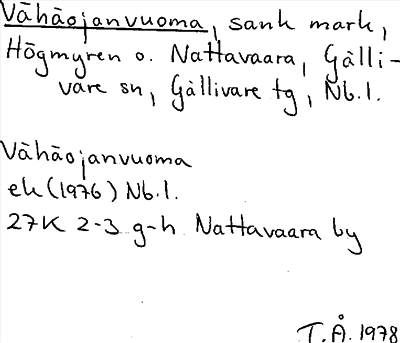 Vähäojanvuoma, sank mark,
Högmyren o. Nattavaara, Gälli-
vare sn, Gällivare tg, Nb.l.
Vähäojanvuoma
ek (1976) Nb.l.
27K 2-3 g-h Nattavaara by
T.Å. 1978